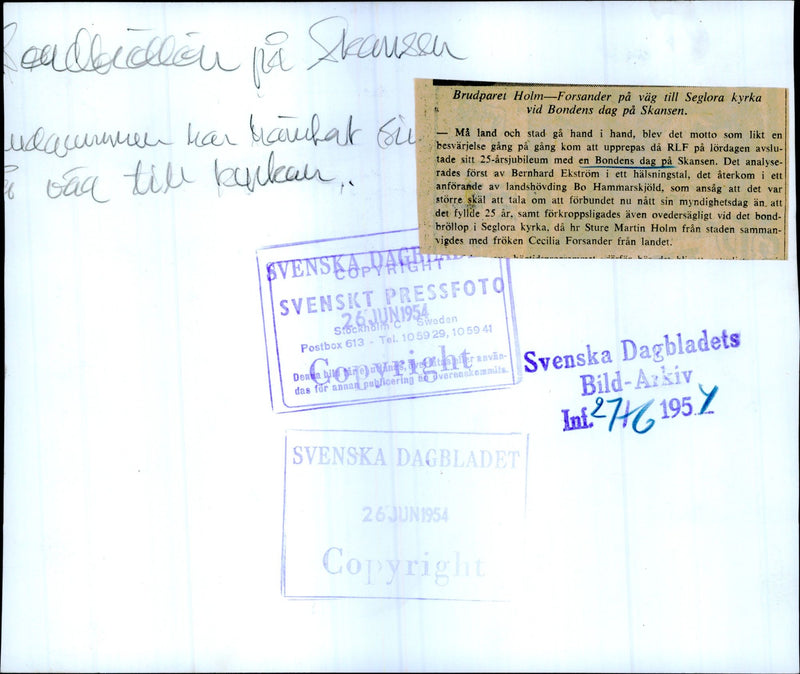 Bondbröllop på Skansen
har hämtat sin
på väg till kyrkan.
Brudparet Holm—Forsander på väg till Seglora kyrka
vid Bondens dag på Skansen.
— Må land och stad gå hand i hand, blev det motto som likt en
besvärjelse gång på gång kom att upprepas då RLF på lördagen avslu-
tade sitt 25-årsjubileum med en Bondens dag på Skansen. Det analyse-
rades först av Bernhard Ekström i ett hälsningstal, det återkom i ett
anförande av landshövding Bo Hammarskjöld, som ansåg att det var
större skäl att tala om att förbundet nu nått sin myndighetsdag än att
det fyllde 25 år, samt förkroppsligades även ovedersägligt vid det bond-
bröllop i Seglora kyrka, då hr Sture Martin Holm från staden samman-
vigdes med fröken Cecilia Forsander från landet.
SVENSKA DAGBLADET
COPYRIGHT
SVENSKT PRESSFOTO
26 JUNI 1954
Stockholm C Sweden
Postbox 613 - Tel. 10 59 29, 10 59 41
Copyright
das för annan publicering än överenskommits.
Svenska Dagbladets
Bild-Arkiv
Inf. 27/6 1954
SVENSKA DAGBLADET
26 JUNI 1954
Copyright